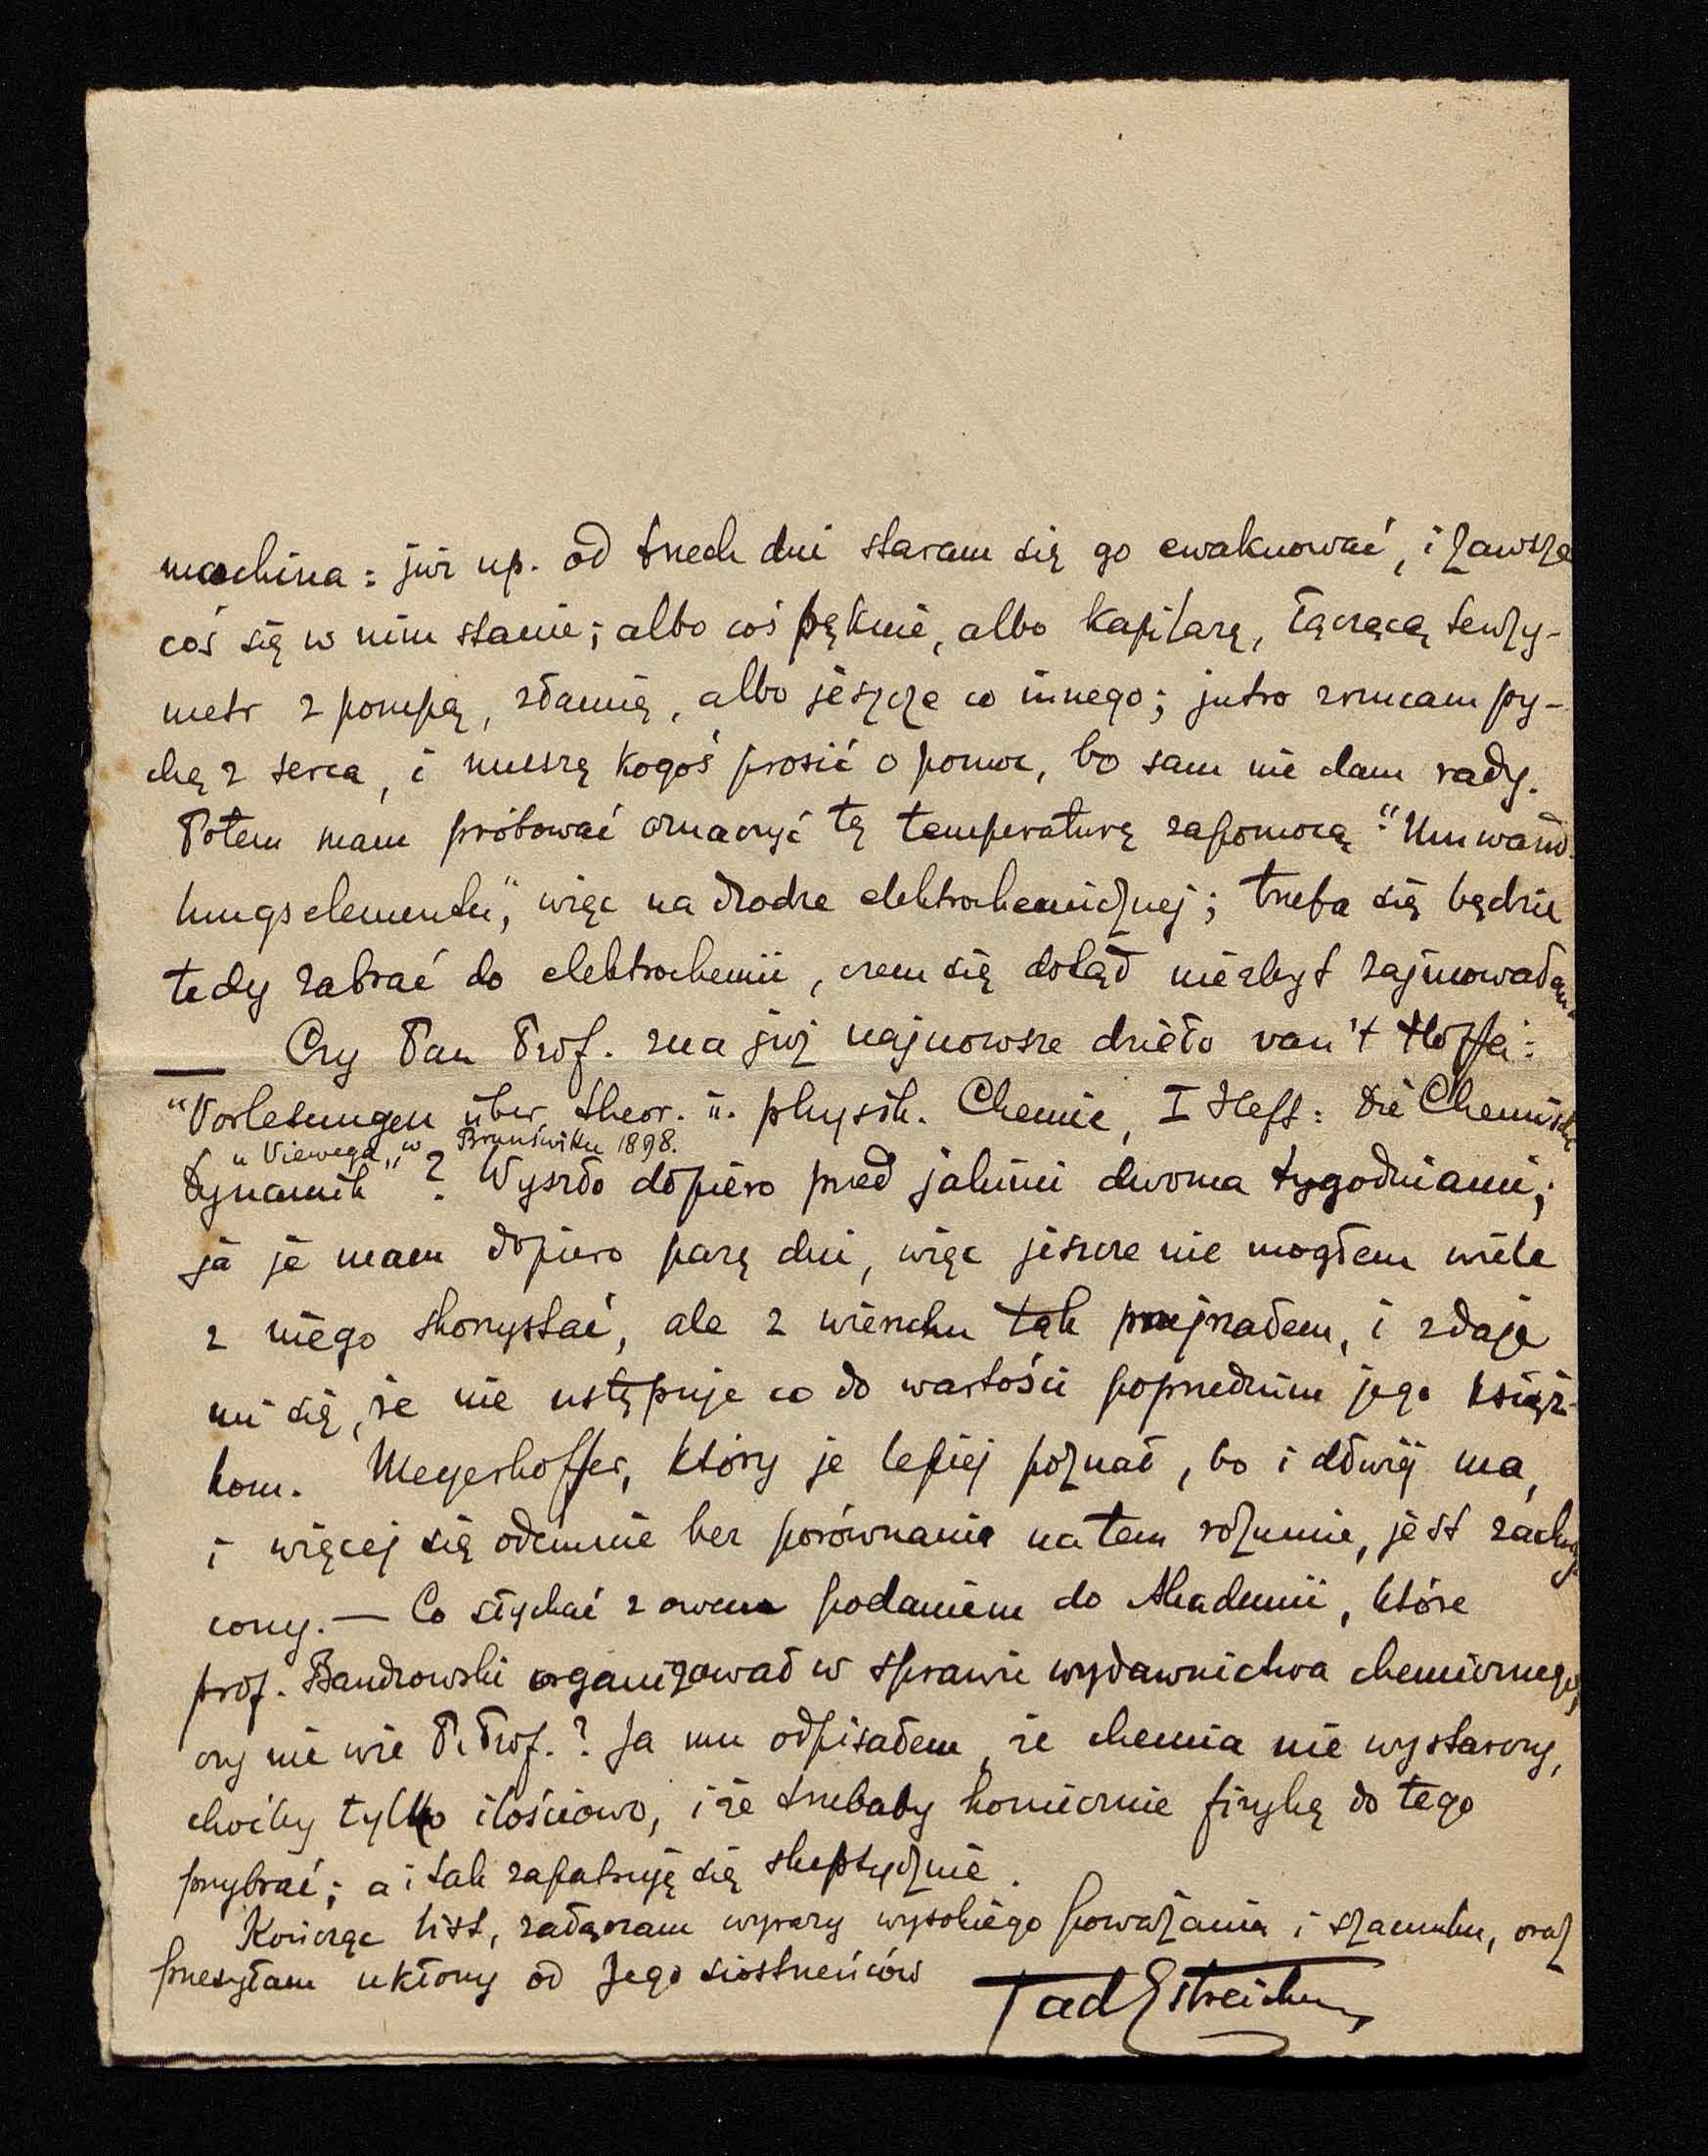 machina: już np. od trzech dni staram się go ewakuować, i zawsze
coś się w nim stanie; albo coś pęknie, albo kapilarę, łączącą tenzy-
metr z pompą, złamię, albo jeszcze co innego; jutro zrzucam py-
chę z serca, i muszę kogoś prosić o pomoc, bo sam nie dam rady.
Potem mam próbować oznaczyć tę temperaturę zapomocą "Umwand-
lungselementu", więc na drodze elektrochemicznej; trzeba się będzie
tedy zabrać do elektrochemii, czem się dotąd niezbyt zajmowałem
Czy Pan Prof. zna już najnowsze dzieło van't Hoffa:
"Vorlesungen über theor. u. physik. Chemie, I Heft: Die Chemische
u Viewega, w Brunświku 1898.
Dynamik"? Wyszło dopiero przed jakimi dwoma tygodniami;
ja je mam dopiero parę dni, więc jeszcze nie mogłem wiele
z niego skorzystać, ale z wierzchu tak przejrzałem, i zdaje
mi się, że nie ustępuje co do wartości poprzednim jego książ-
kom. Meyerhoffer, który je lepiej poznał, bo i dłużej ma,
i więcej się odemnie bez porównania na tem rozumie, jest zachwy-
cony. — Co słychać z owem podaniem do Akademii, które
prof. Bandrowski organizował w sprawie wydawnictwa chemicznego,
czy nie wie P. Prof.? Ja mu odpisałem, że chemia nie wystarczy,
choćby tylko ilościowo, i że trzebaby koniecznie fizykę do tego
przybrać; a i tak zapatruję się skeptycznie.
Kończąc list, załączam wyrazy wysokiego poważania i szacunku, oraz
przesyłam ukłony od Jego siostrzeńców
TadEstreicher